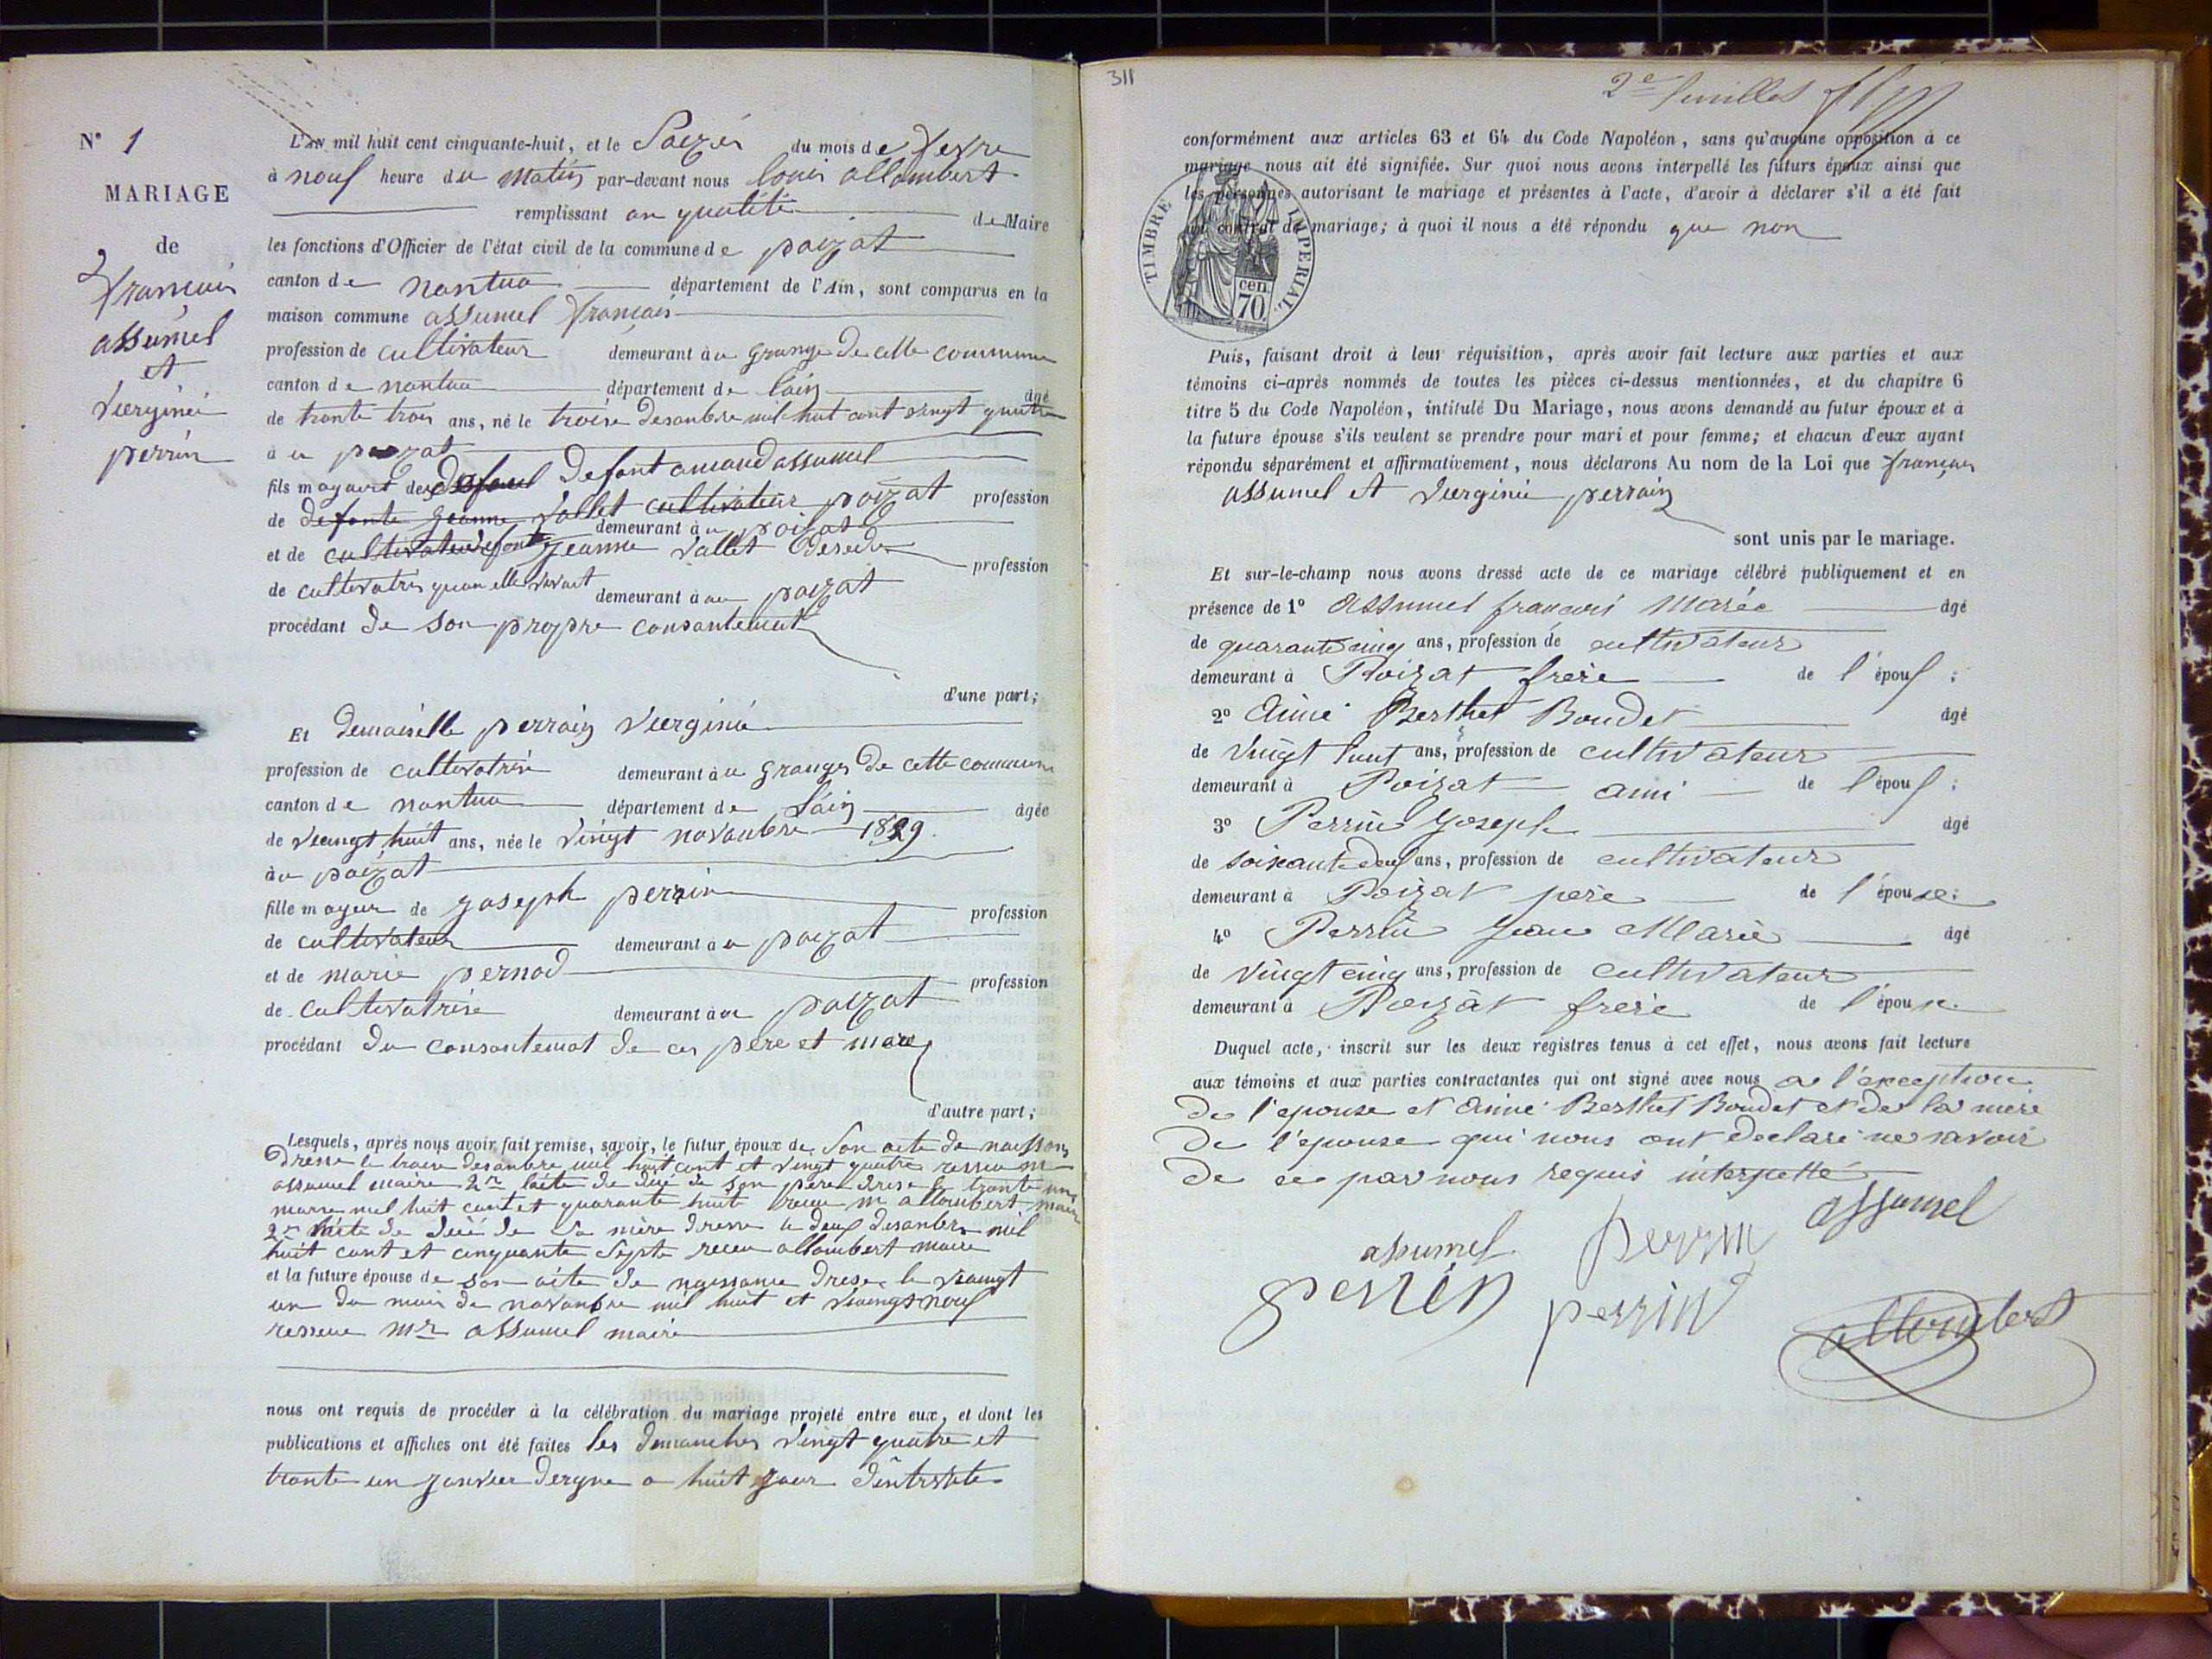 N° 1
MARIAGE
de
françois
assumel
et
vierginié
perrin
L'an mil huit cent cinquante-huit, et le Saizés du mois de fevre
à nouf heure du matin par-devant nous louis allombert
remplissant an qualité de Maire
les fonctions d'Officier de l'état civil de la commune de poizat
canton de nantua département de l'Ain, sont comparus en la
maison commune assumel françois
profession de cultivateur demeurant àu grange de cette commune
canton de nantua département de l'ain âgé
de trante trois ans, né le troise desanbre mil huit cant vingt quatre
à u poizat
fils mayeur de defont amand assumel
de defante jeanne vallet cultivateur poizat profession
demeurant à u poizat
et de cultivateur defonte jeanne vallet
profession
de cultivatris quan elle vivait demeurant à au poizat
procédant de son propre consantement
d'une part;
Et demaiselle perrain vierginié
profession de cultivatrise demeurant à u granges de cette commune
canton de nantua département de l'ain âgée
de vieingt huit ans, née le vingt novanbre 1829
àu poizat
fille mayeur de joseph perrin
profession
de cultivateur demeurant à u poizat
et de marie pernod
profession
de cultivatrise demeurant à au poizat
procédant du consantemat de ces père et mère
d'autre part;
Lesquels, après nous avoir fait remise, savoir, le futur époux de son acte de naissans
dresse le troise desanbre mil huit cant et vingt quatre resseu mr
assumel maire 2m l'aite de desé de son père drese le trante un
marse mil huit cant et quarante huite receu mr allombert maire
de desé de sa mère dresse le deux desanbre mil
huit cant et cinquante septe receu allombert maire
et la future épouse de son aite de naissance drese le vieingt
un du mois de novanbre mil huit et vieingt nouf
resseue mr assumel maire
nous ont requis de procéder à la célébration du mariage projeté entre eux, et dont les
publications et affiches ont été faites les dimanches vingt quatre et
trante un janvier dergne a huit jour d'intrvate
311
2e feuillet
conformément aux articles 63 et 64 du Code Napoléon, sans qu'aucune opposition à ce
mariage nous ait été signifiée. Sur quoi nous avons interpellé les futurs époux ainsi que
les personnes autorisant le mariage et présentes à l'acte, d'avoir à déclarer s'il a été fait
un contrat de mariage; à quoi il nous a été répondu que non
TIMBRE IMPERIAL
70 cen.
Puis, faisant droit à leur réquisition, après avoir fait lecture aux parties et aux
témoins ci-après nommés de toutes les pièces ci-dessus mentionnées, et du chapitre 6
titre 5 du Code Napoléon, intitulé Du Mariage, nous avons demandé au futur époux et à
la future épouse s'ils veulent se prendre pour mari et pour femme; et chacun d'eux ayant
répondu séparément et affirmativement, nous déclarons Au nom de la Loi que françois
assumel et vierginié perrain
sont unis par le mariage.
Et sur-le-champ nous avons dressé acte de ce mariage célébré publiquement et en
présence de 1° Assumel françois Marée âgé
de quarante cinq ans, profession de cultivateur
demeurant à Poizat frère de l'époux;
2° Aimé Berthet Bondet âgé
de vingt huit ans, profession de cultivateur
demeurant à Poizat ami de l'époux;
3° Perrin Joseph âgé
de soixante deux ans, profession de cultivateur
demeurant à Poizat père de l'épouse;
4° Perrin Jean Marie âgé
de vingt cinq ans, profession de cultivateur
demeurant à Poizat frère de l'épouse.
Duquel acte, inscrit sur les deux registres tenus à cet effet, nous avons fait lecture
aux témoins et aux parties contractantes qui ont signé avec nous a l'exeeption
de l'épouse et Aimé Berthet Bondet et de la mère
de l'épouse qui nous ont declaré ne savoir
de ce par nous requis interpetté
assumel perrin assumel
perrin perrin allombert